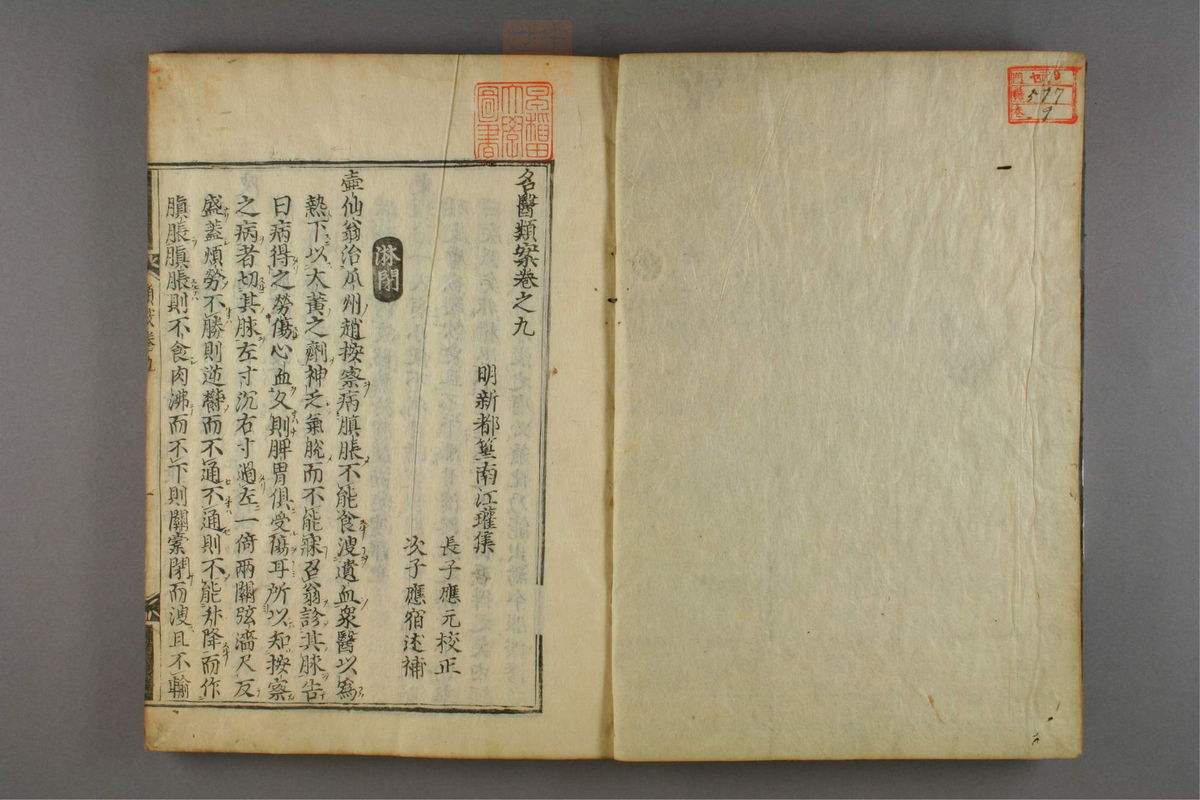 名醫類案卷之九
明新都篁南江瓘集
長子應元校正
次子應宿述補
淋閉
壺仙翁治瓜州趙按察病䐜脹不能食溲遺血衆醫以爲
熱下以大黃之劑神乏氣脫而不能寐召翁診其脉告
曰病得之勞傷心血久則脾胃俱受傷耳所以知按察
之病者切其脉左寸沉右寸過左一倍兩關弦濇尺反
盛蓋煩勞不勝則逆欝而不通不通則不能升降而作
䐜脹䐜脹則不食肉沸而不下則關索閉而溲且不輸
早稻田大學圖書
門
號 577
卷 9